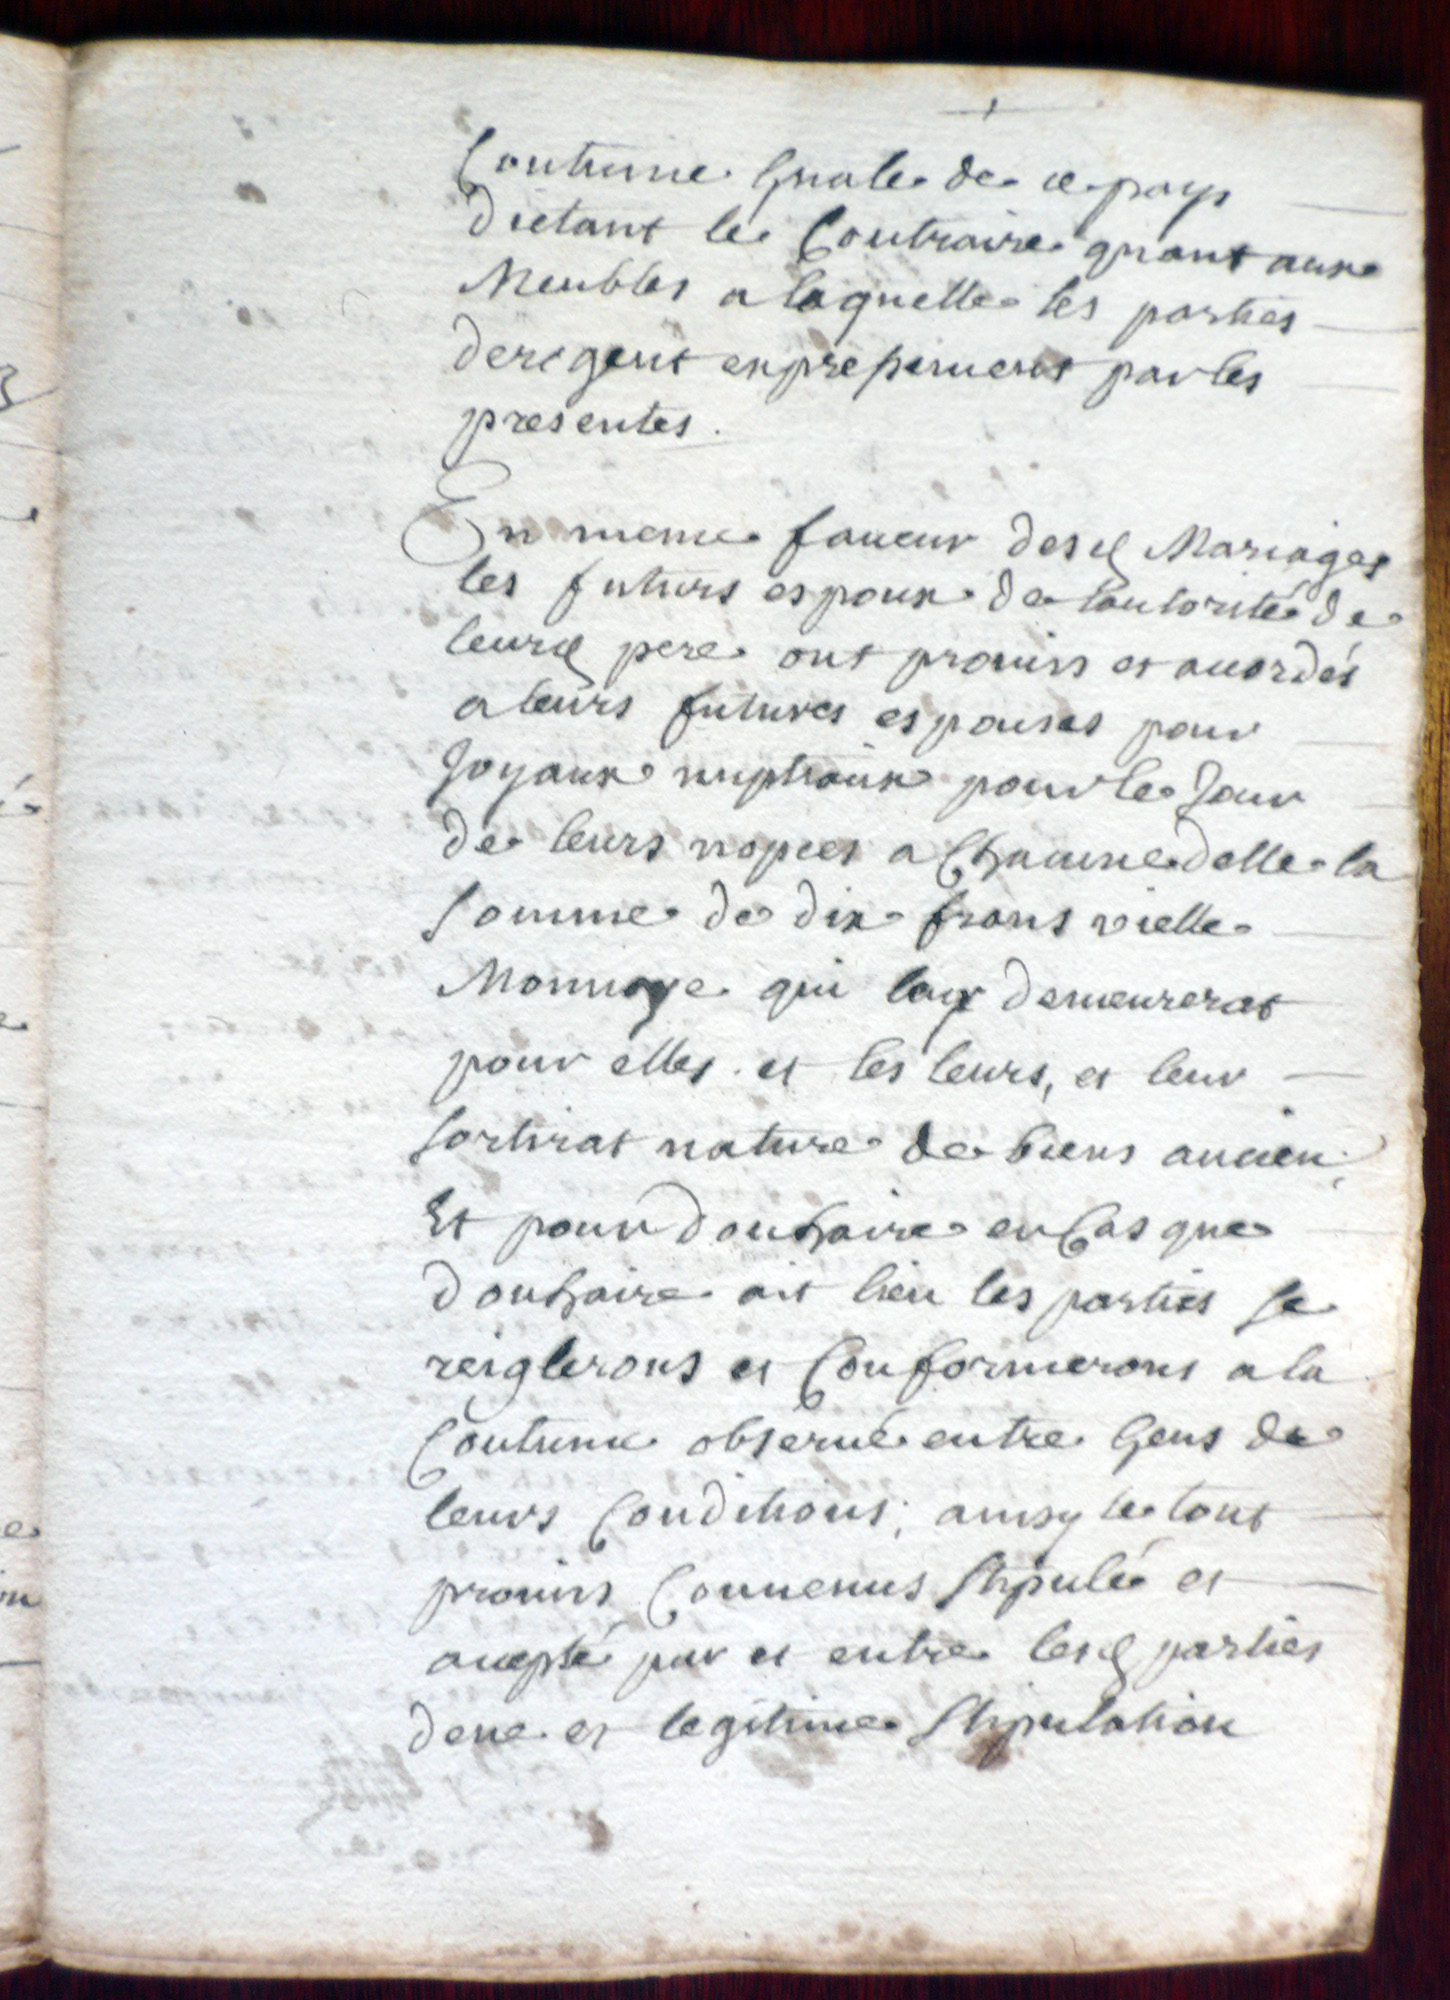 Coutume Gnale de ce pays
dictant le Contraire quant aux
Meubles a laquelle les parties
derogent expressement par les
presentes.
En meme faueur desd Mariages
les futurs espoux de lautorité de
leursd pere ont promis et acordés
a leurs futures espouses pour
Joyaux nuptiaux pour le Jour
de leurs nopces a Chacune delle la
somme de dix frans vielle
Monnoye qui leur demeurerat
pour elles et les leurs, et leur
sortirat nature de biens ancien,
Et pour douhaire en Cas que
douhaire ait lieu les parties se
reiglerons et Conformerons a la
Coutume obserué entre Gens de
leurs Conditions; ainsy le tout
promis Conuenus stipulé et
accepté par et entre lesd parties
deue et legitime stipulation